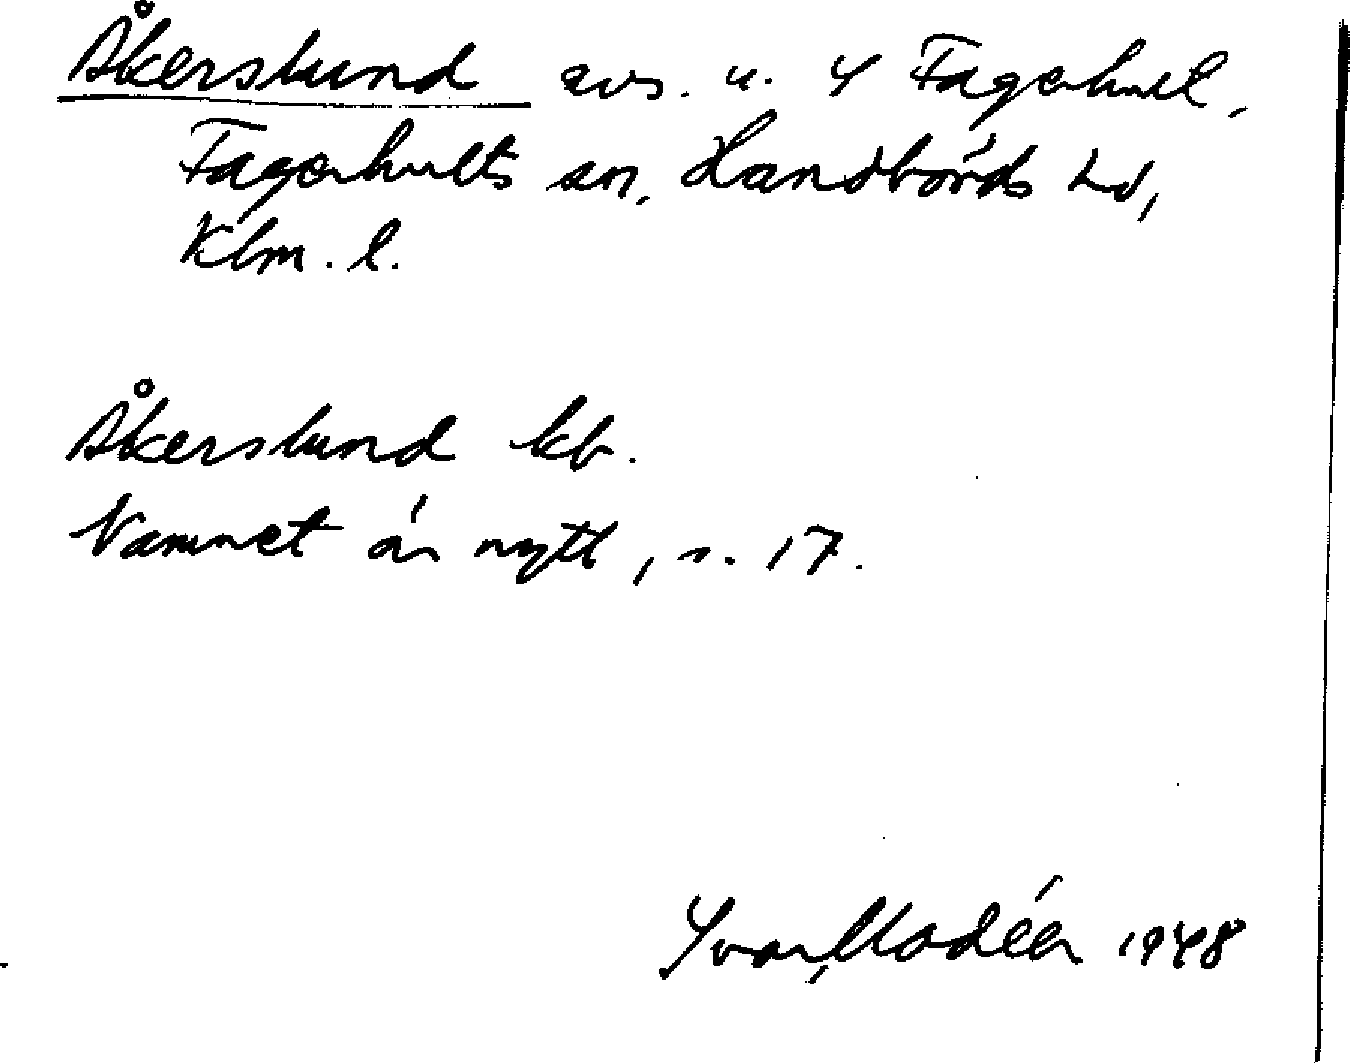 Åkerslund avs. u. 4 Fagerhult,
Fagerhults sn, Handbörds hd,
Klm. l.
Åkerslund kb.
Namnet är nytt, s. 17.
Yvar Modéer 1948